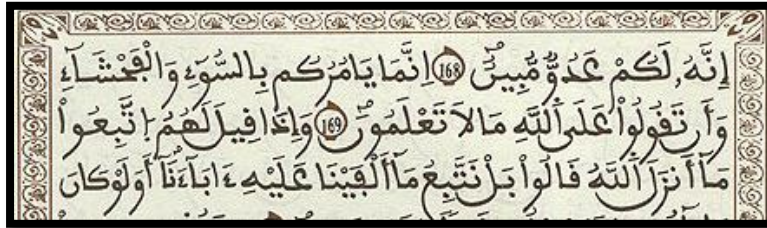 إِنَّهُۥ لَكُمْ عَدُوٌّ مُّبِينٌ 168 اِنَّمَا يَامُرُكُم بِالسُّوٓءِ وَالْفَحْشَآءِ
وَأَن تَقُولُواْ عَلَى اَللَّهِ مَا لاَ تَعْلَمُونَ 169 وَإِذَا قِيلَ لَهُمُ اُتَّبِعُواْ
مَآ أَنزَلَ اَللَّهُ قَالُواْ بَلْ نَتَّبِعُ مَآ أَلْفَيْنَا عَلَيْهِ ءَابَآءَنَآ أَوَلَوْ كَانَ